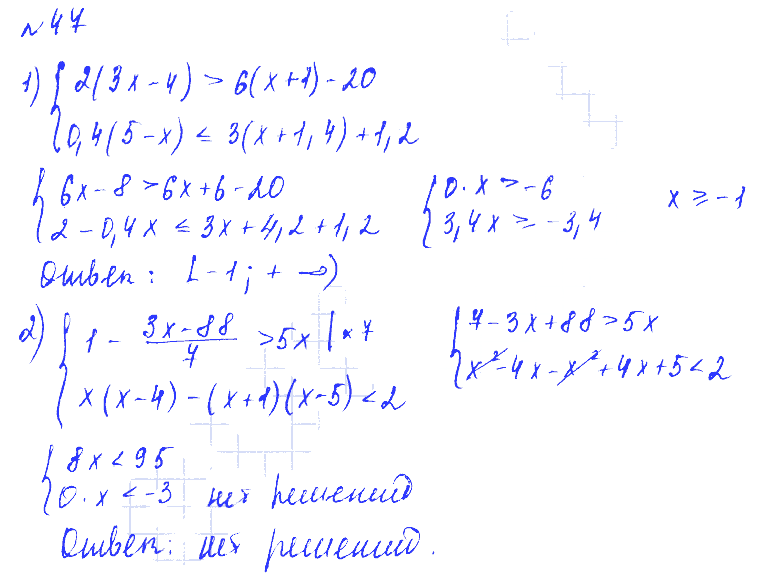 №47
1) { 2(3x-4) > 6(x+1)-20
0,4(5-x) ≤ 3(x+1,4)+1,2
{ 6x-8>6x+6-20
2-0,4x ≤ 3x+4,2+1,2
{ 0·x>-6
3,4x ≥ -3,4
x ≥ -1
Ответ: [-1; +∞)
2) { 1 - (3x-88)/7 >5x |×7
x(x-4)-(x+1)(x-5)<2
{ 7-3x+88>5x
x²-4x-x²+4x+5<2
{ 8x<95
0·x<-3 нет решений
Ответ: нет решений.